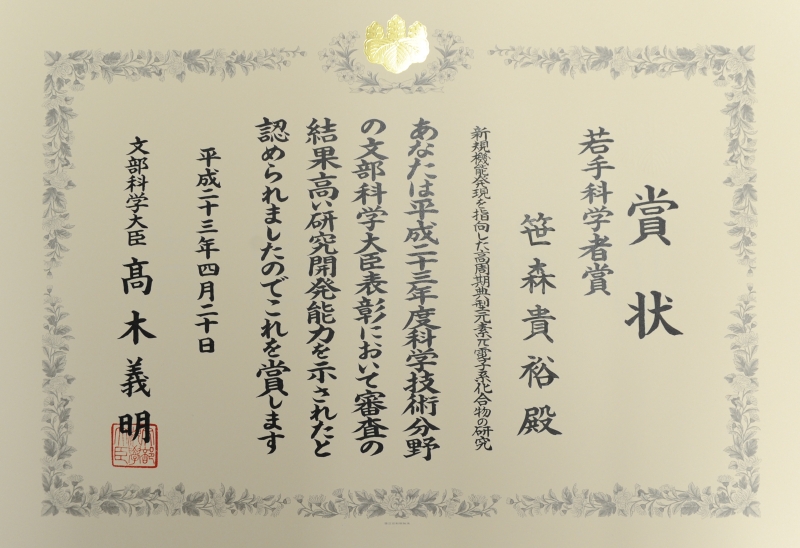 賞状
若手科学者賞
笹森貴裕殿
新規機能発現を指向した高周期典型元素π電子系化合物の研究
あなたは平成二十三年度科学技術分野
の文部科学大臣表彰において審査の
結果高い研究開発能力を示されたと
認められましたのでこれを賞します
平成二十三年四月二十日
文部科学大臣 髙木義明